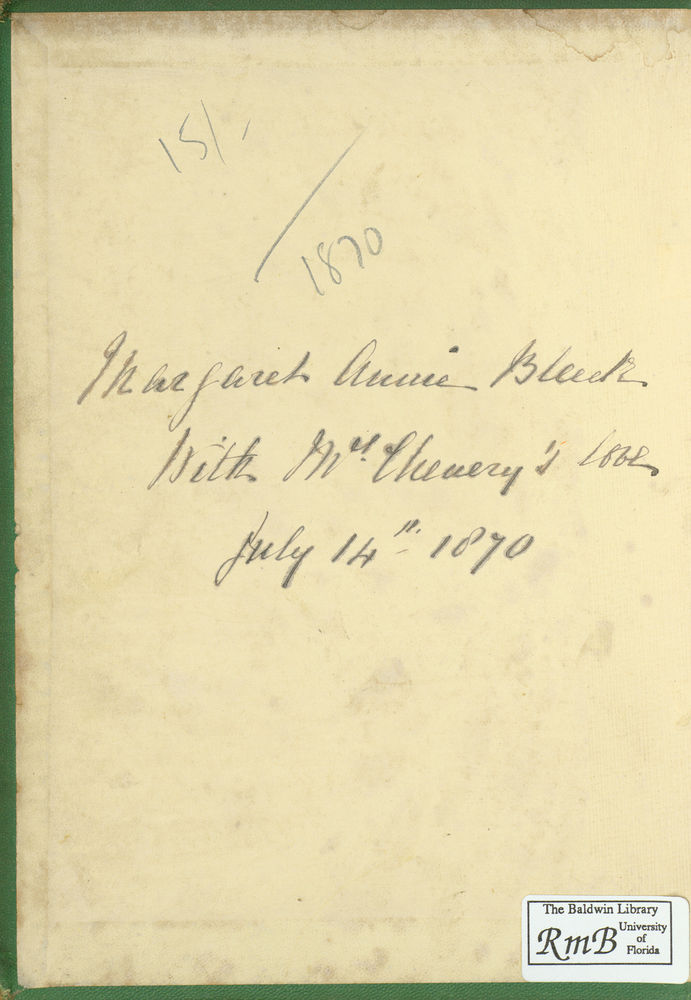 15/.
/
1870
Margaret Annie Bleeck
With Mrs. Chenery's love
July 14th. 1870
The Baldwin Library
RmB University
of
Florida